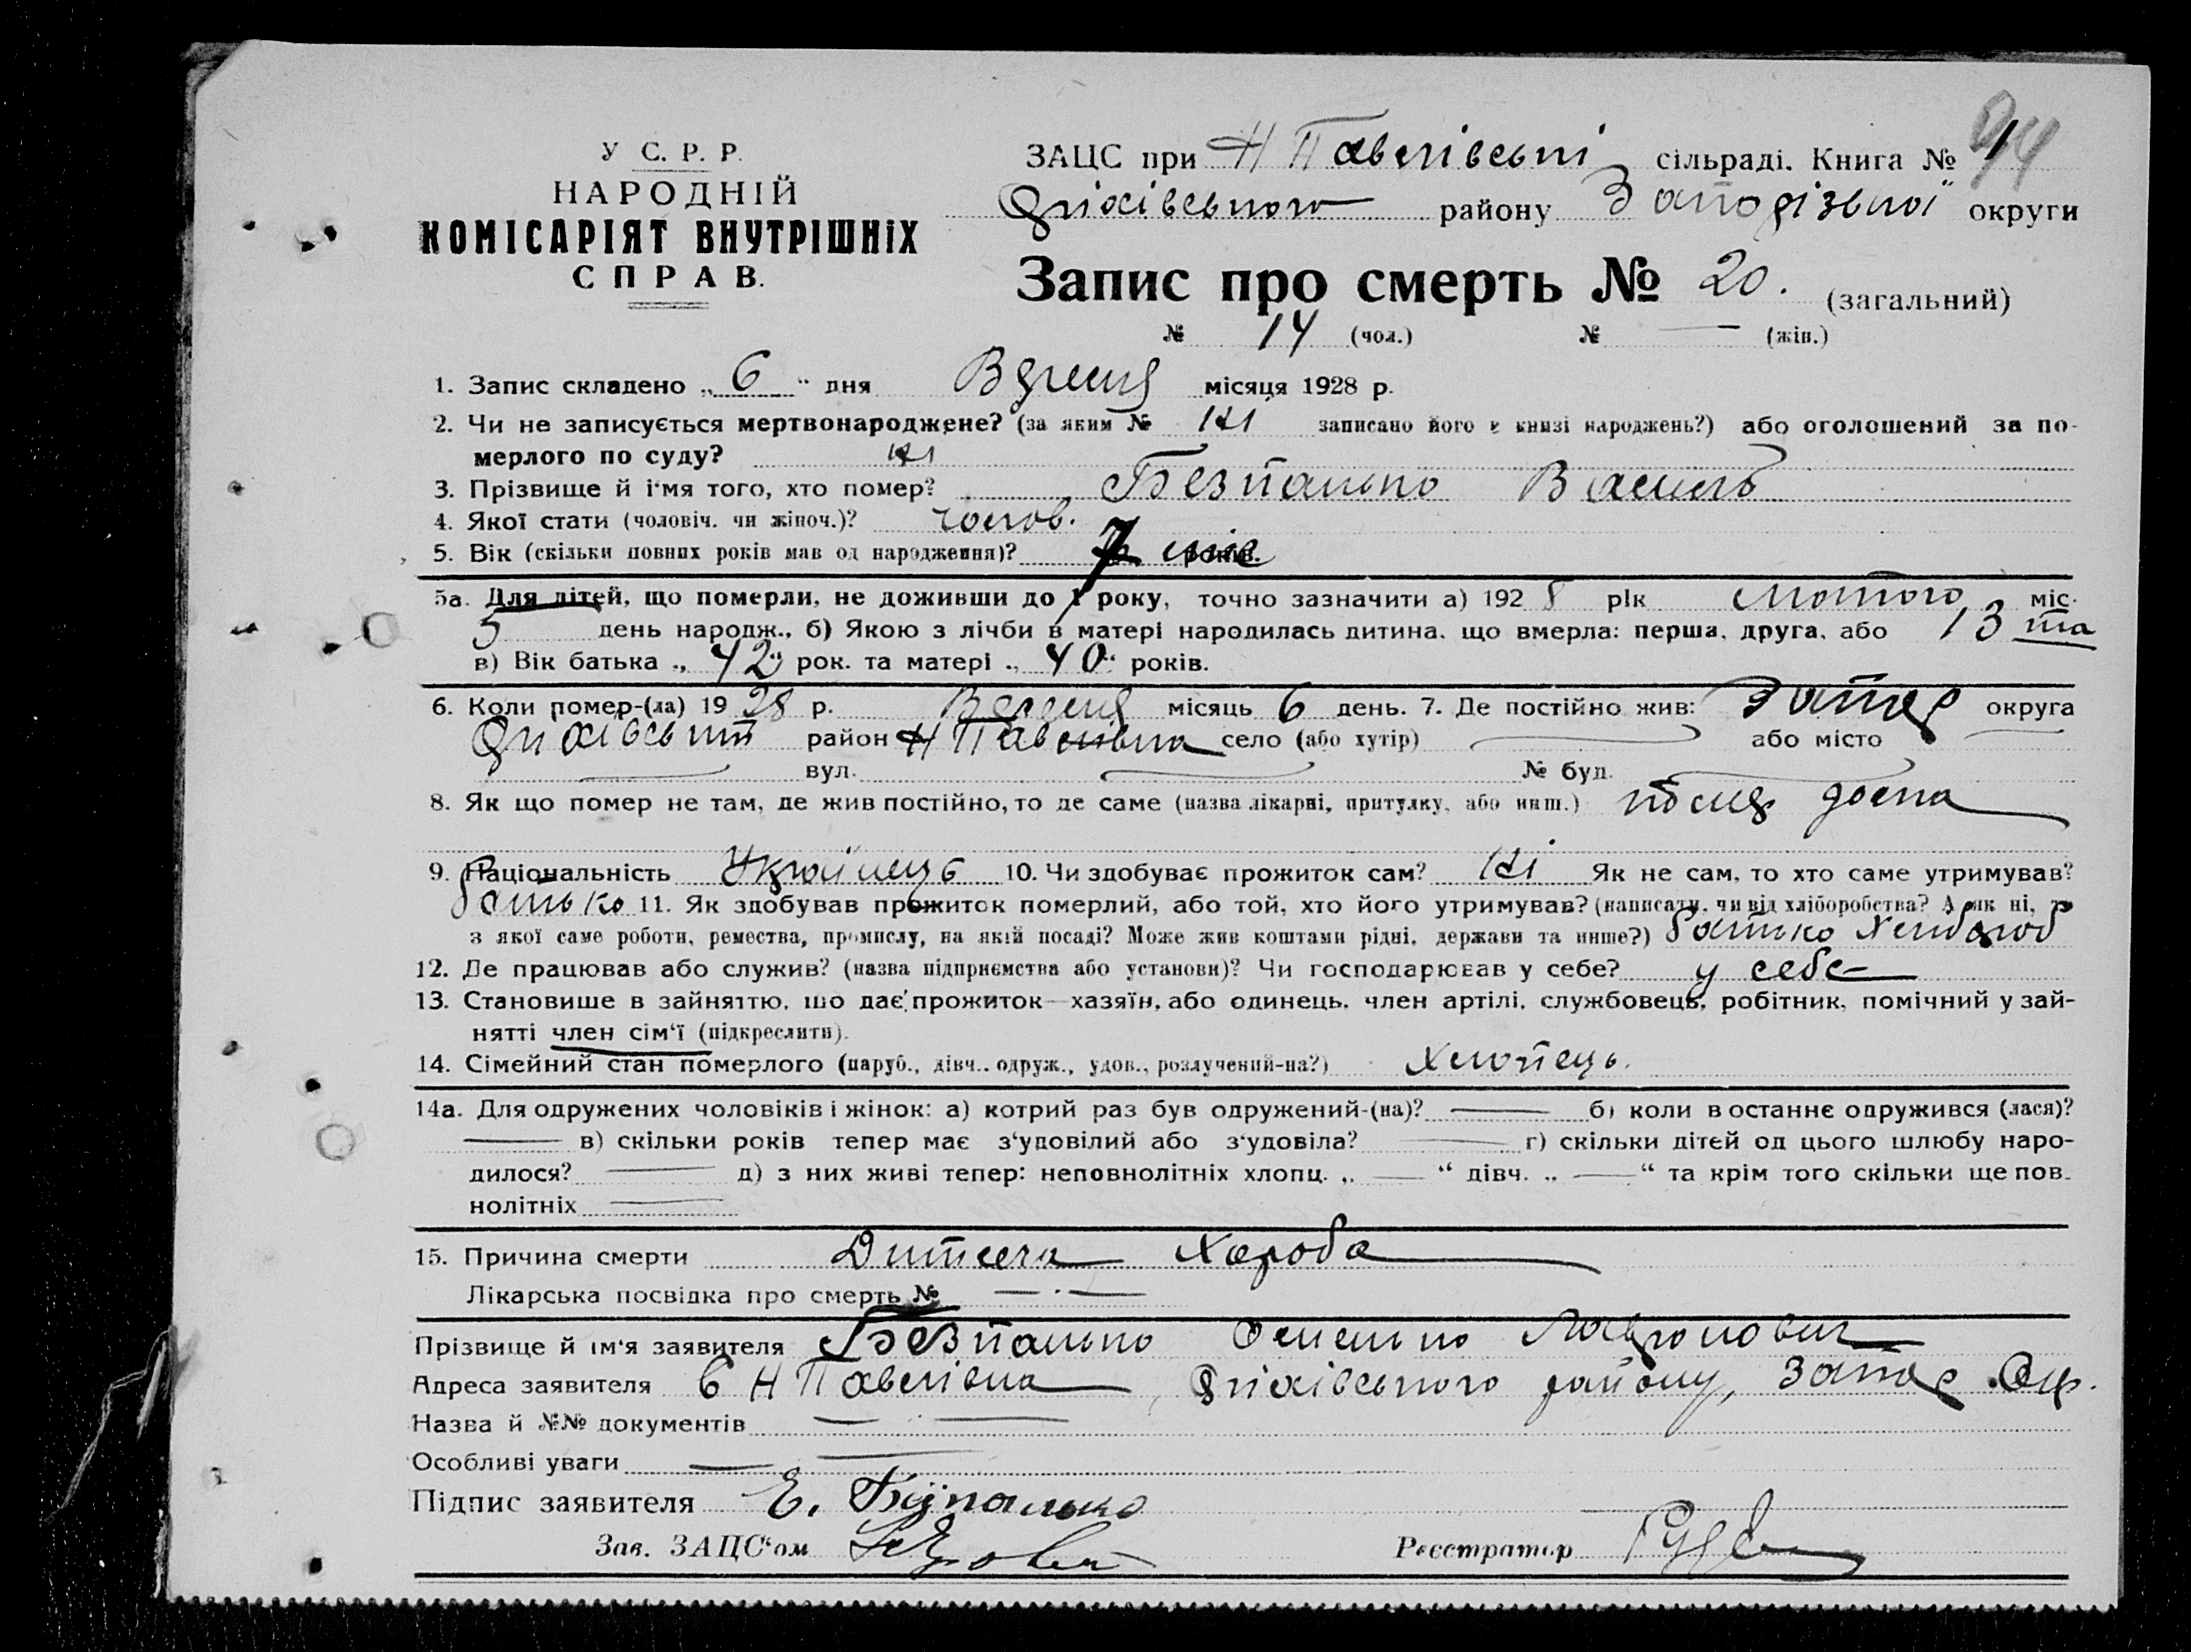 У С. Р. Р.
НАРОДНІЙ
КОМІСАРІЯТ ВНУТРІШНІХ
СПРАВ.
94
ЗАЦС при Н Павлівські сільраді. Книга № 1
Оріхівського району Запорізької округи
Запис про смерть № 20. (загальний)
№ 14 (чол.) № — (жін.)
1. Запис складено „ 6 “ дня Вересня місяця 1928 р.
2. Чи не записується мертвонароджене? (за яким № Ні записано його в книзі народжень?) або оголошений за по-
мерлого по суду? Ні
3. Прізвище й і'мя того, хто помер? Безпалько Василь
4. Якої стати (чоловіч. чи жіноч.)? чолов.
5. Вік (скільки повних років мав од народження)? 7 міс років.
5а. Для дітей, що померли, не доживши до 1 року, точно зазначити а) 1928 рік Лютого міс.
5 день народж., б) Якою з лічби в матері народилась дитина, що вмерла: перша, друга, або 13 та
в) Вік батька „ 42 “ рок. та матері „ 40 “ років.
6. Коли помер-(ла) 1928 р. Вересня місяць 6 день. 7. Де постійно жив: Запор округа
Оріхівський район Н Павлівка село (або хутір) — або місто —
— вул. — № буд. —
8. Як що помер не там, де жив постійно, то де саме (назва лікарні, притулку, або инш.) дома
9. Національність Українець 10. Чи здобуває прожиток сам? Ні Як не сам, то хто саме утримував?
батько 11. Як здобував прожиток померлий, або той, хто його утримував? (написати, чи від хліборобства? А як ні, то
з якої саме роботи, ремества, промислу, на якій посаді? Може жив коштами рідні, держави та инше?) батько Хлібороб
12. Де працював або служив? (назва підприємства або установи)? Чи господарював у себе? у себе
13. Становище в зайняттю, що дає прожиток—хазяїн, або одинець, член артілі, службовець, робітник, помічний у зай-
нятті член сім'ї (підкреслити).
14. Сімейний стан померлого (паруб., дівч., одруж., удов., розлучений-на?) хлопець.
14а. Для одружених чоловіків і жінок: а) котрий раз був одружений-(на)? — б) коли в останнє одружився (лася)?
— в) скільки років тепер має з'удовілий або з'удовіла? — г) скільки дітей од цього шлюбу наро-
дилося? — д) з них живі тепер: неповнолітніх хлопц. „ — “ дівч. „ — “ та крім того скільки ще пов-
нолітніх —
15. Причина смерти Дитяча Хороба
Лікарська посвідка про смерть № —
Прізвище й ім'я заявителя Безпалько Омелько Лавронович
Адреса заявителя с Н Павлівка, Оріхівського району, Запор. Окр.
Назва й №№ документів —
Особливі уваги —
Підпис заявителя Е. Безпалько
Зав. ЗАЦС'ом Реєстратор